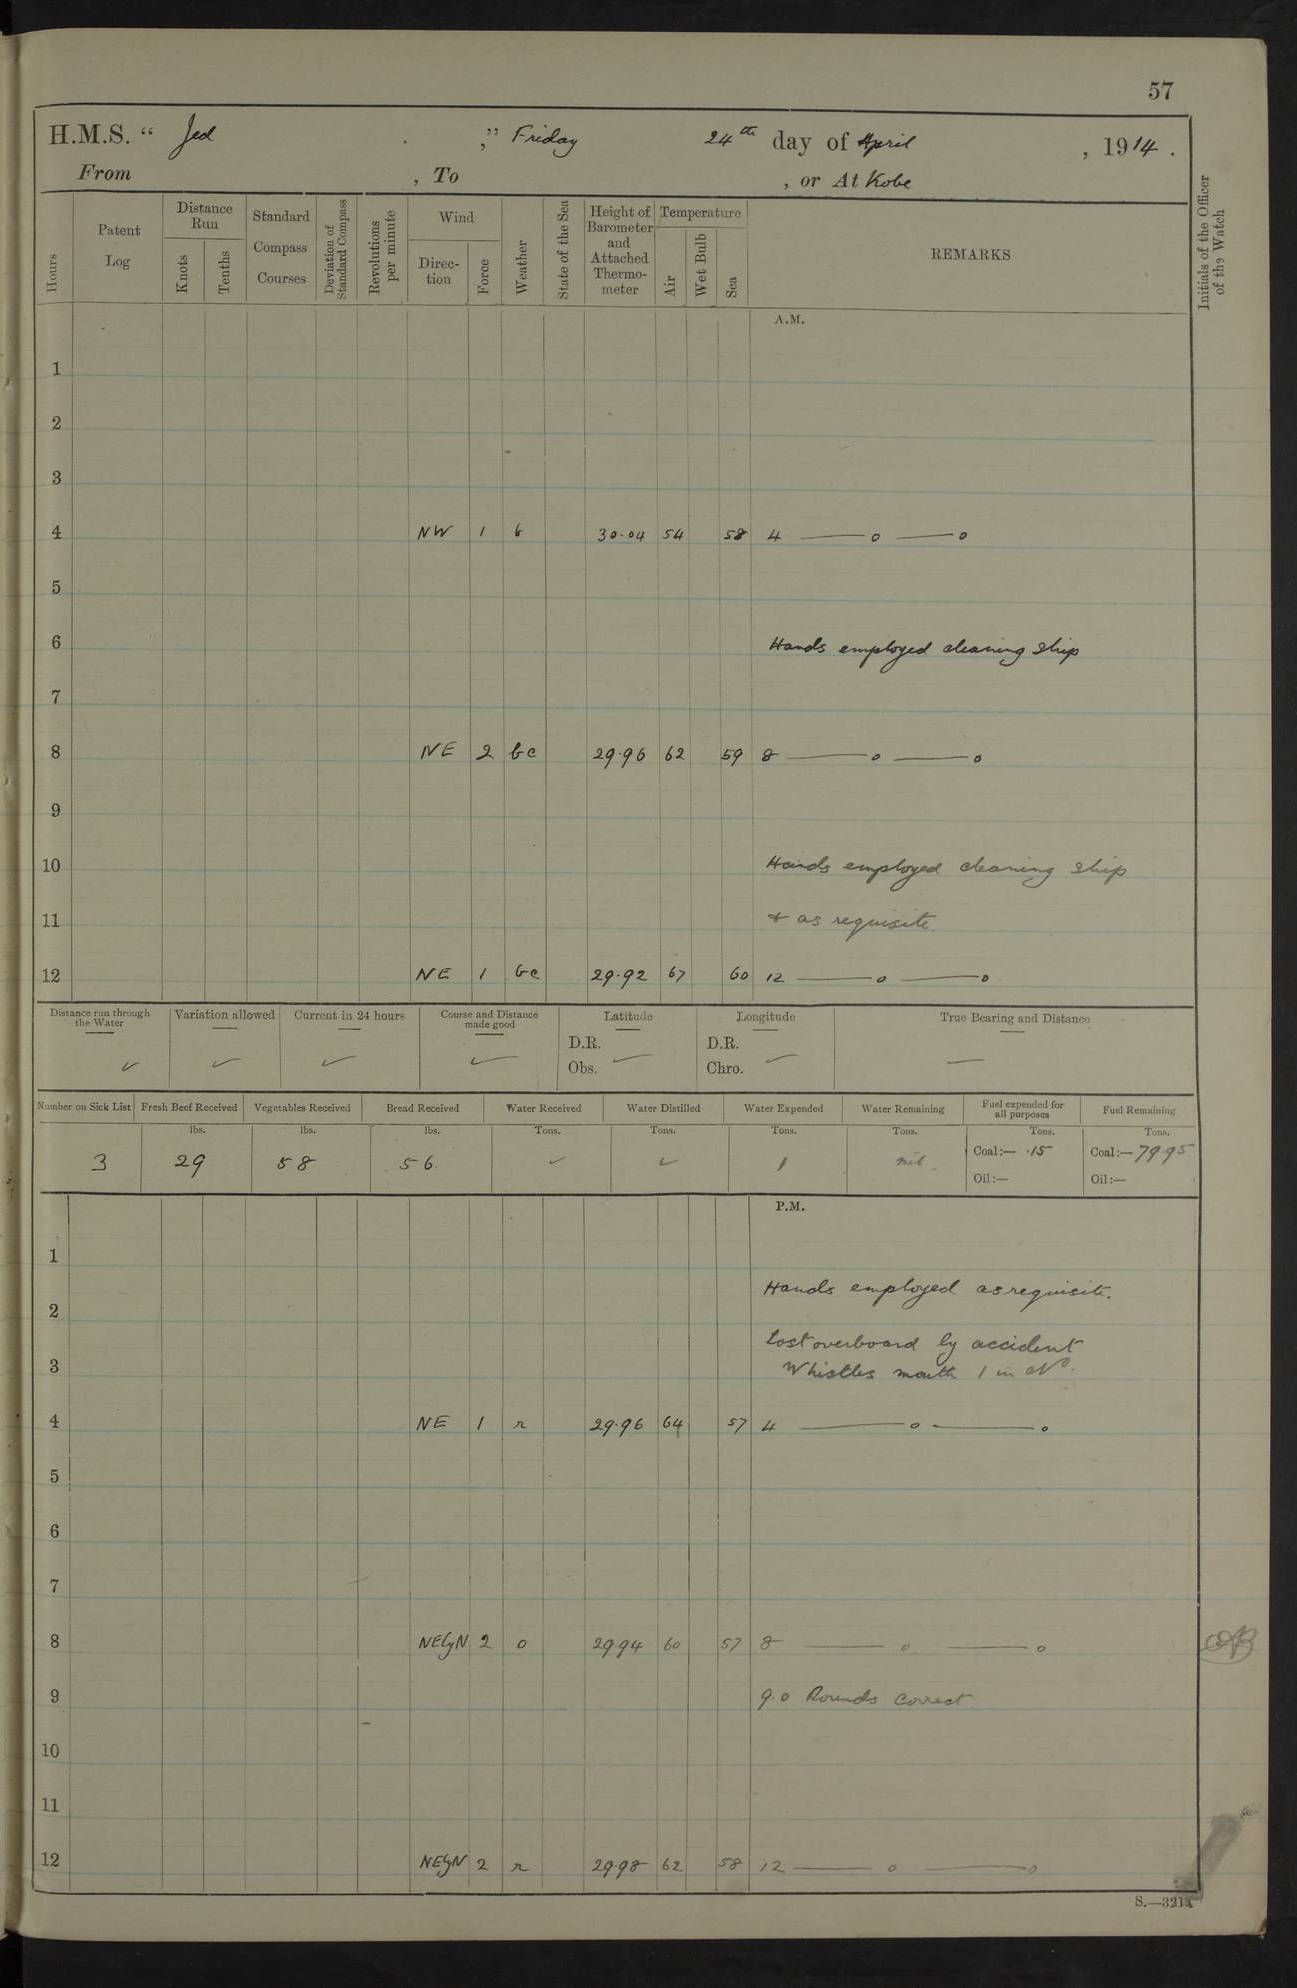 57
H.M.S. “ Jed ,” Friday 24th day of April , 1914 .
From , To , or At Kobe
Hours
Patent Log
Distance Run
Knots
Tenths
Standard Compass Courses
Deviation of Standard Compass
Revolutions per minute
Wind
Direc-tion
Force
Weather
State of the Sea
Height of Barometer and Attached Thermo-meter
Temperature
Air
Wet Bulb
Sea
REMARKS
Initials of the Officer of the Watch
A.M.
1
2
3
4 NW 1 b 30.04 54 58 4 —— o —— o
5
6 Hands employed cleaning ship
7
8 NE 2 bc 29.96 62 59 8 —— o —— o
9
10 Hands employed cleaning ship
11 & as requisite.
12 NE 1 bc 29.92 67 60 12 —— o —— o
Distance run through the Water
Variation allowed
Current in 24 hours
Course and Distance made good
Latitude
D.R.
Obs.
Longitude
D.R.
Chro.
True Bearing and Distance
Number on Sick List Fresh Beef Received Vegetables Received Bread Received Water Received Water Distilled Water Expended Water Remaining Fuel expended for all purposes Fuel Remaining
lbs. lbs. lbs. Tons. Tons. Tons. Tons. Tons. Tons.
3 29 58 56 ✓ ✓ 1 nil. Coal:— .15 Coal:— 79.95
Oil:— Oil:—
P.M.
1
Hands employed as requisite.
2
Lost overboard by accident
3 Whistles mouth 1 in No.
4 NE 1 r 29.96 64 57 4 —— o —— o
5
6
7
8 NEbyN 2 o 29.94 60 57 8 —— o —— o
9 9.0 Rounds Correct.
10
11
12 NEbyN 2 r 29.98 62 58 12 —— o —— o
S.—321A